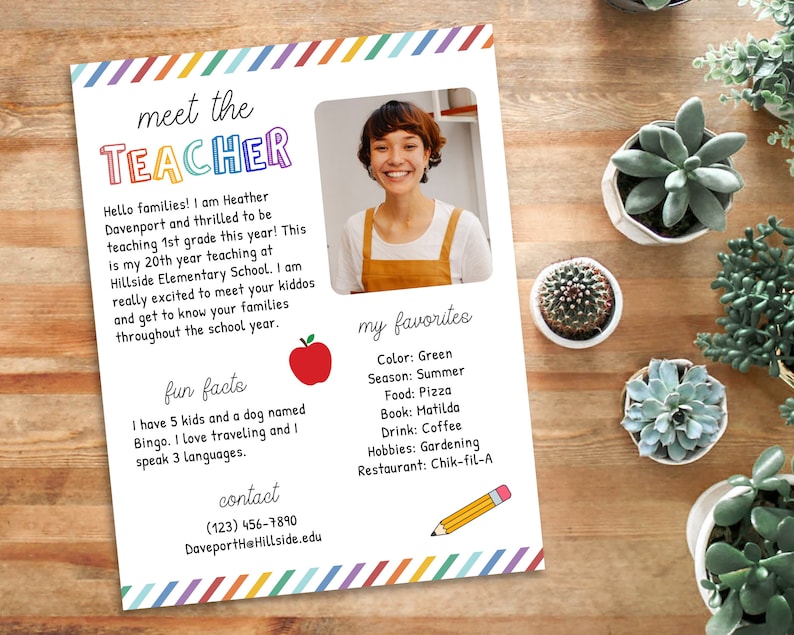 meet the
TEACHER
Hello families! I am Heather
Davenport and thrilled to be
teaching 1st grade this year! This
is my 20th year teaching at
Hillside Elementary School. I am
really excited to meet your kiddos
and get to know your families
throughout the school year.
fun facts
I have 5 kids and a dog named
Bingo. I love traveling and I
speak 3 languages.
my favorites
Color: Green
Season: Summer
Food: Pizza
Book: Matilda
Drink: Coffee
Hobbies: Gardening
Restaurant: Chik-fil-A
contact
(123) 456-7890
DaveportH@Hillside.edu